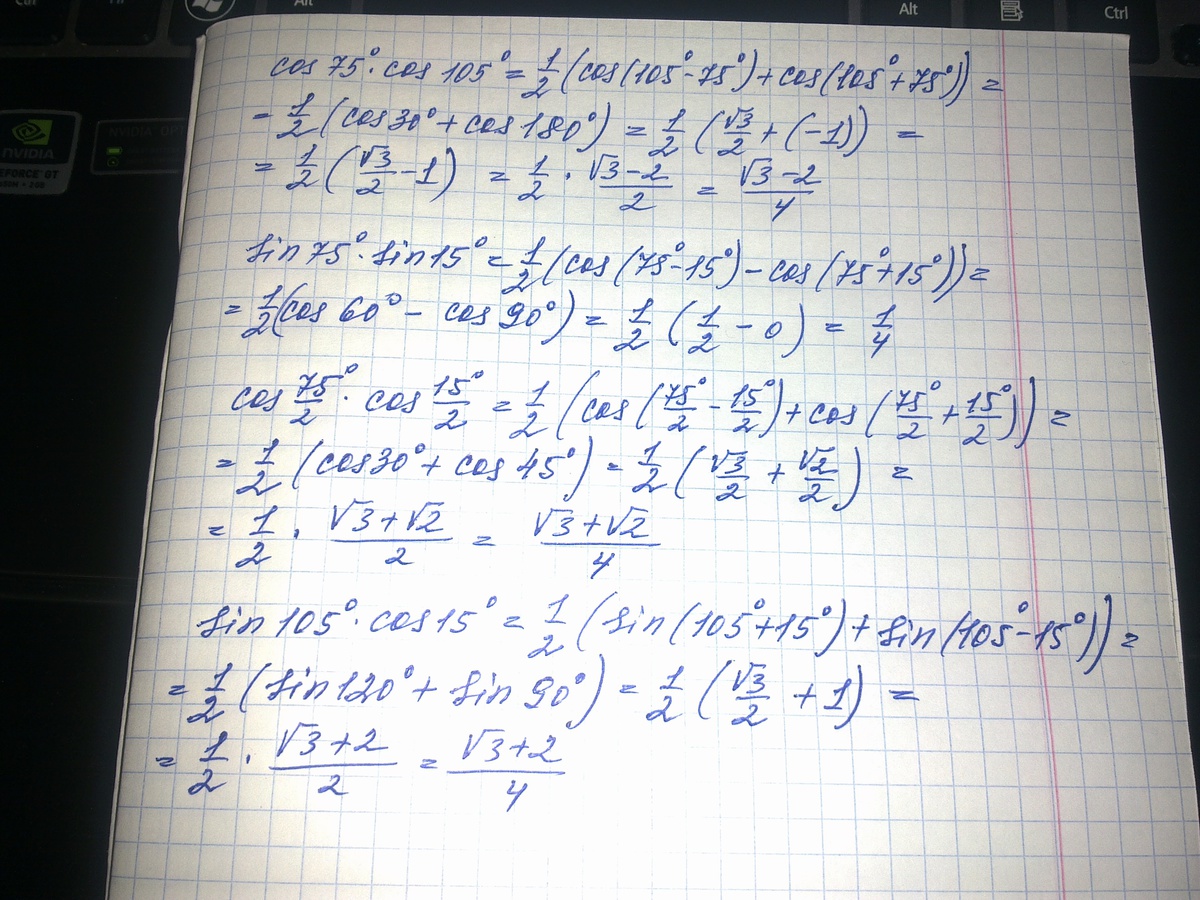 Ctrl
Alt
Alt
Ctrl
nVIDIA
GEFORCE GT
cos 75° · cos 105° = 1/2 (cos(105° - 75°) + cos(105° + 75°)) =
- 1/2 (cos 30° + cos 180°) = 1/2 (√3/2 + (-1)) =
= 1/2 (√3/2 - 1) = 1/2 · (√3 - 2)/2 = (√3 - 2)/4
sin 75° · sin 15° = 1/2 (cos(75° - 15°) - cos(75° + 15°)) =
= 1/2 (cos 60° - cos 90°) = 1/2 (1/2 - 0) = 1/4
cos 75°/2 · cos 15°/2 = 1/2 (cos(75°/2 - 15°/2) + cos(75°/2 + 15°/2)) =
= 1/2 (cos 30° + cos 45°) = 1/2 (√3/2 + √2/2) =
= 1/2 · (√3 + √2)/2 = (√3 + √2)/4
sin 105° · cos 15° = 1/2 (sin(105° + 15°) + sin(105° - 15°)) =
= 1/2 (sin 120° + sin 90°) = 1/2 (√3/2 + 1) =
= 1/2 · (√3 + 2)/2 = (√3 + 2)/4